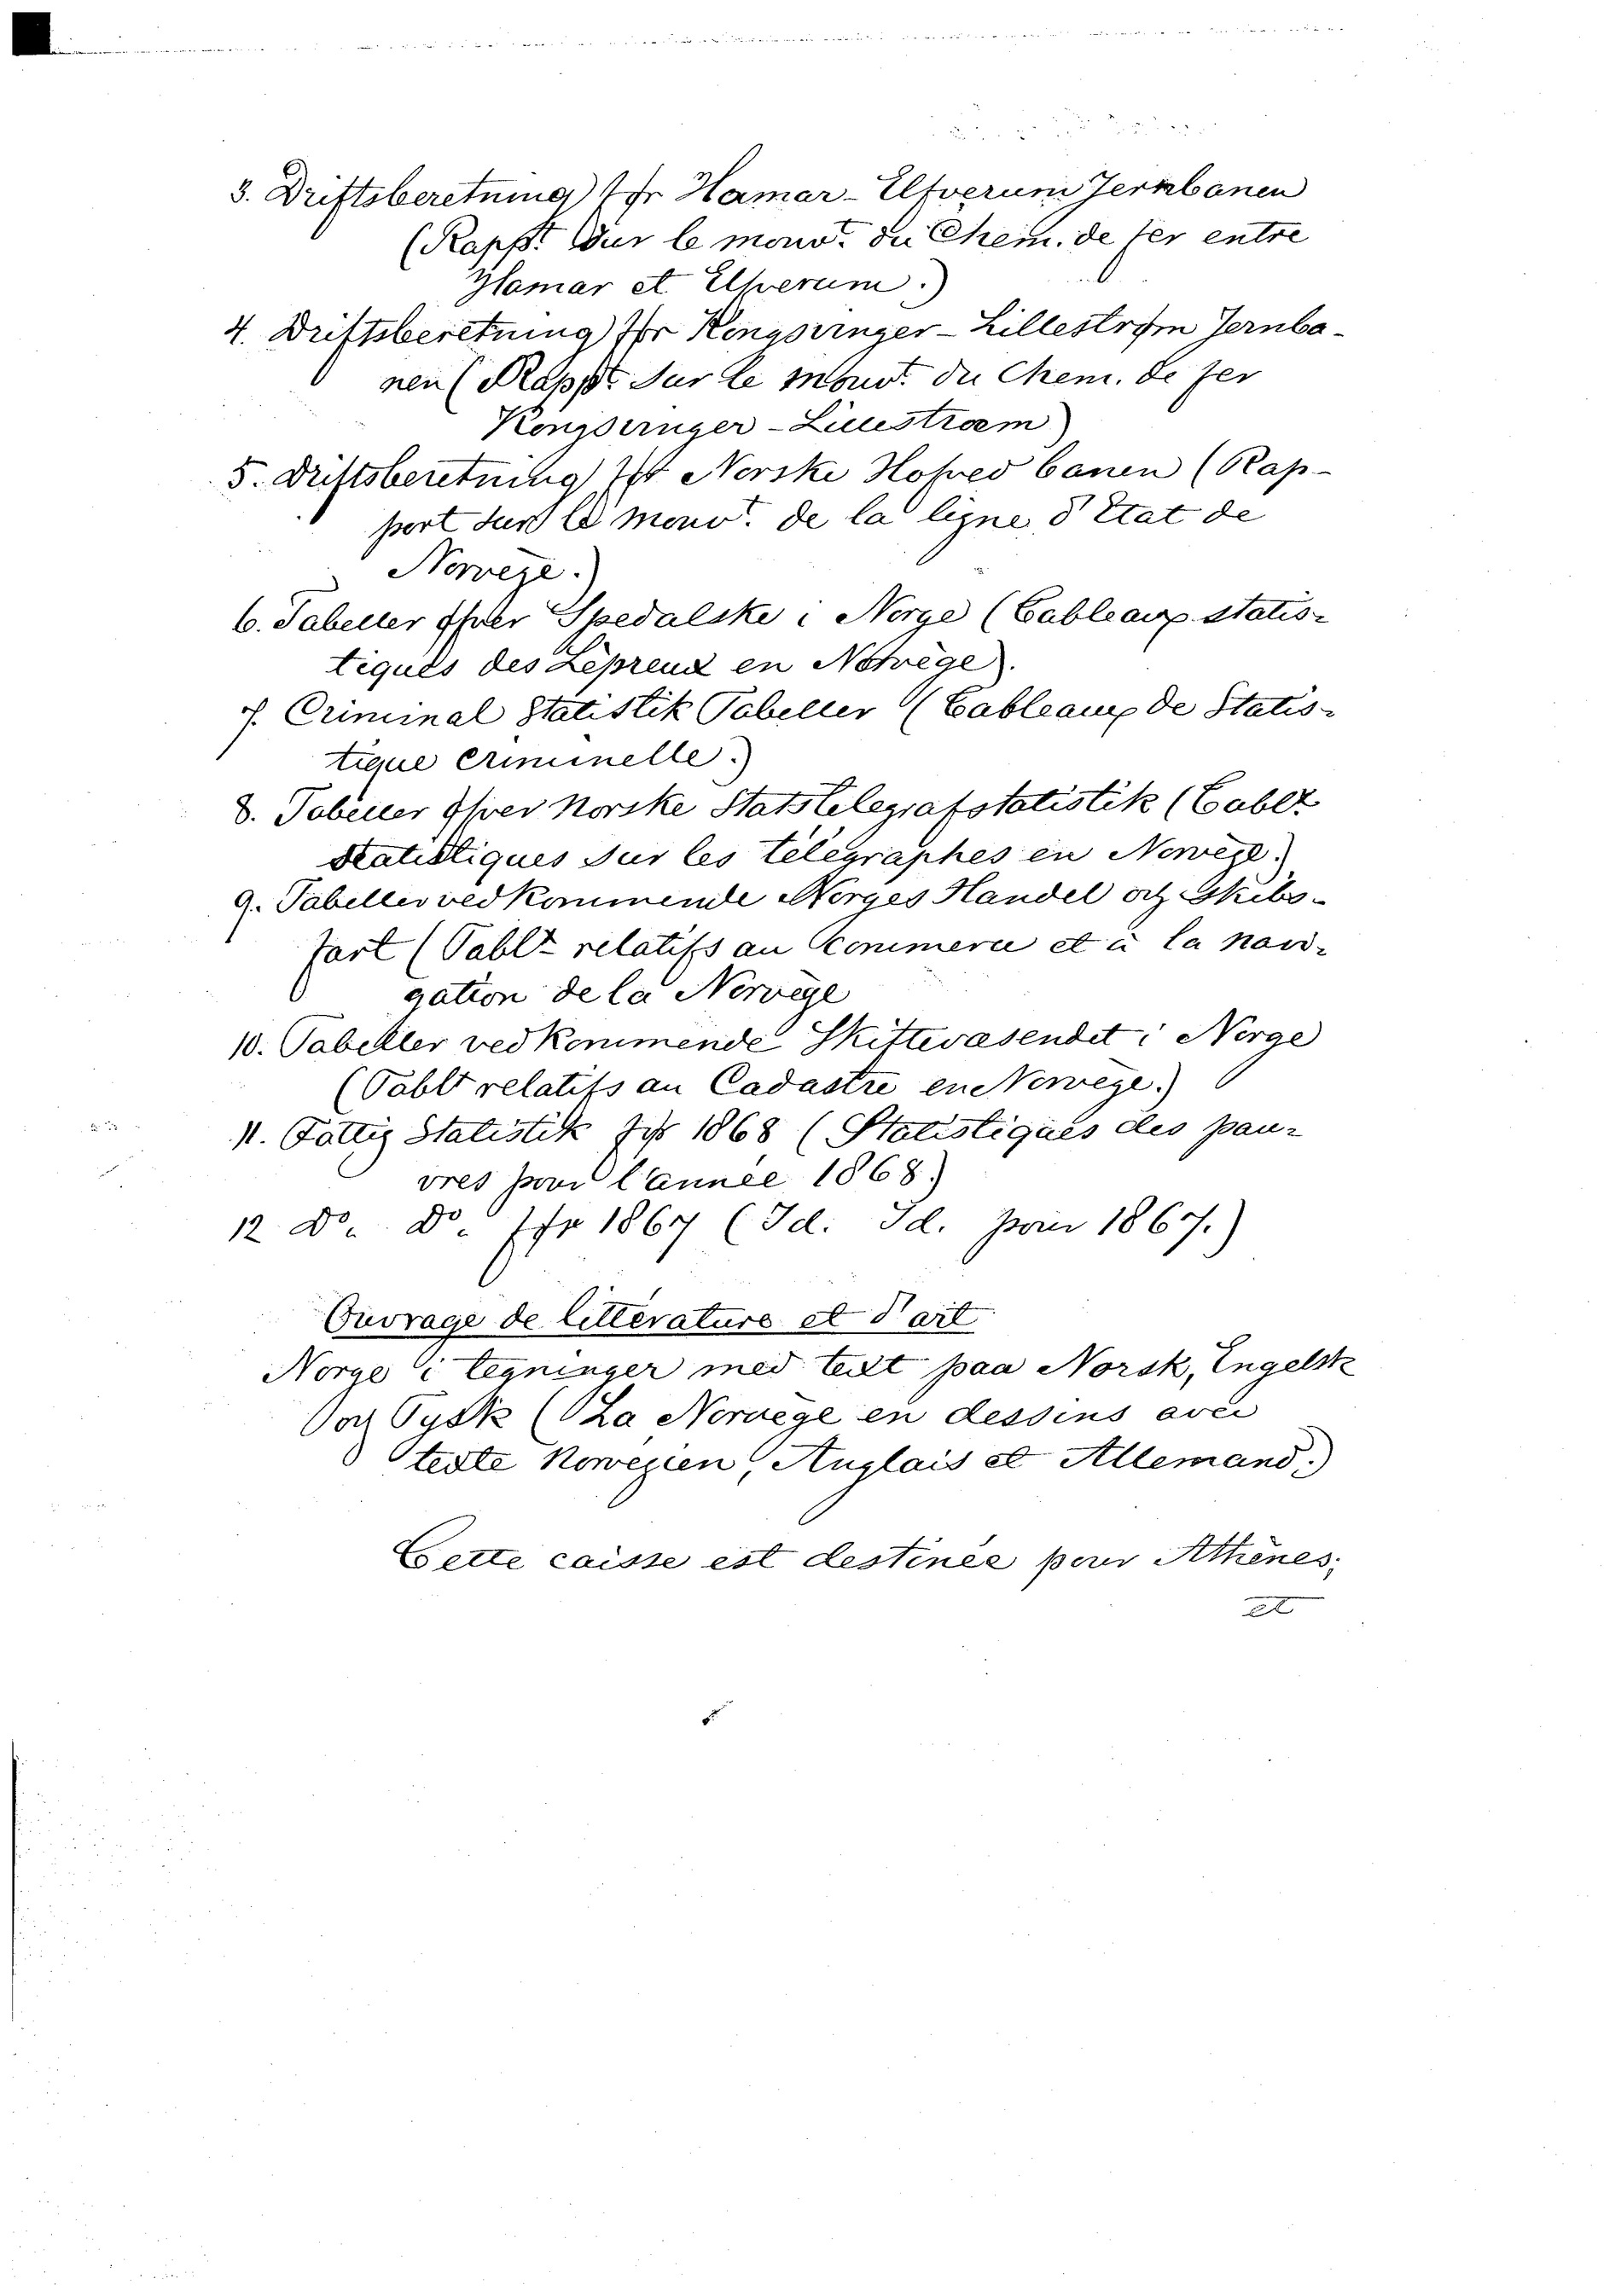 3. Driftsberetning før Hamar - Elfverum Jernbanen
(Rappt. sur le mouvt. du Chem. de fer entre
Hamar et Elfverum.)
4. Driftsberetning før Kongsvinger - Lillestrøm Jernba-
nen (Rappt. sur le mouvt. du Chem. de fer
Kongsvinger - Lillestroem)
5. Driftsberetning før Norske Hofved banen (Rap-
port sur le mouvt. de la ligne d'Etat de
Norvege.)
6. Tabeller øfver Spedalske i Norge (Tableaux statis-
tiques des Lépreux en Norvège).
7. Criminal Statistik Tabeller (Tableaux de Statis-
tique criminelle.)
8. Tabeller øfver Norske Statstelegrafstatistik (Tablx
statistiques sur les télégraphes en Norvège.)
9. Tabeller vedkommende Norges Handel og Skibs-
fart (Tablx relatifs au Commerce et à la navi-
gation de la Norvège
10. Tabeller vedkommende Skittevæsendet i Norge
(Tablx relatifs au Cadastre en Norvege.)
11. Fattig Statistik før 1868 (Statistiques des pau-
vres pour l'année 1868)
12 Do. Do. før 1867 (Id. Id. pour 1867.)
Ouvrage de littérature et d'art
Norge i tegninger med text paa Norsk, Engelsk
og Tysk (La Norvège en dessins avec
texte Norvegien, Anglais et Allemand.)
Cette caisse est destinée pour Athènes,
et